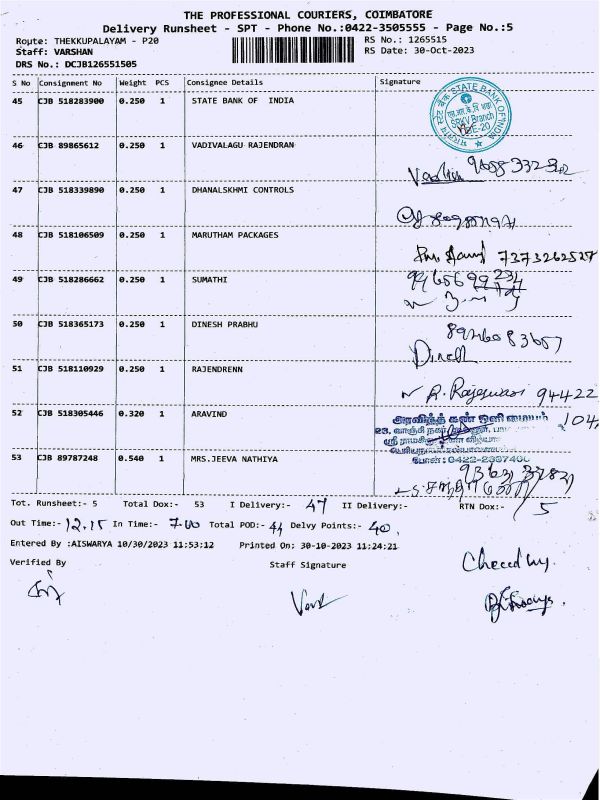 THE PROFESSIONAL COURIERS, COIMBATORE
Delivery Runsheet - SPT - Phone No.:0422-3505555 - Page No.:5
Route: THEKKUPALAYAM - P20 RS No.: 1265515
Staff: VARSHAN RS Date: 30-Oct-2023
DRS No.: DCJB126551505
S No Consignment No Weight PCS Consignee Details Signature
45 CJB 518283900 0.250 1 STATE BANK OF INDIA
STATE BANK OF INDIA
SRKV Branch
46 CJB 89865612 0.250 1 VADIVALAGU RAJENDRAN
47 CJB 518339890 0.250 1 DHANALSKHMI CONTROLS
48 CJB 518106509 0.250 1 MARUTHAM PACKAGES
7373262527
49 CJB 518286662 0.250 1 SUMATHI
50 CJB 518365173 0.250 1 DINESH PRABHU
8946083657
51 CJB 518110929 0.250 1 RAJENDRENN
R. Rajeswari 94422
52 CJB 518305446 0.320 1 ARAVIND
அரவிந்த் கண் ஒளி மையம் 104,
53 CJB 89787248 0.540 1 MRS.JEEVA NATHIYA
Tot. Runsheet:- 5 Total Dox:- 53 I Delivery:- 47 II Delivery:- RTN Dox:- 5
Out Time:- 12.15 In Time:- 7.00 Total POD:- 41 Delvy Points:- 40,
Entered By :AISWARYA 10/30/2023 11:53:12 Printed On: 30-10-2023 11:24:21
Verified By Staff Signature